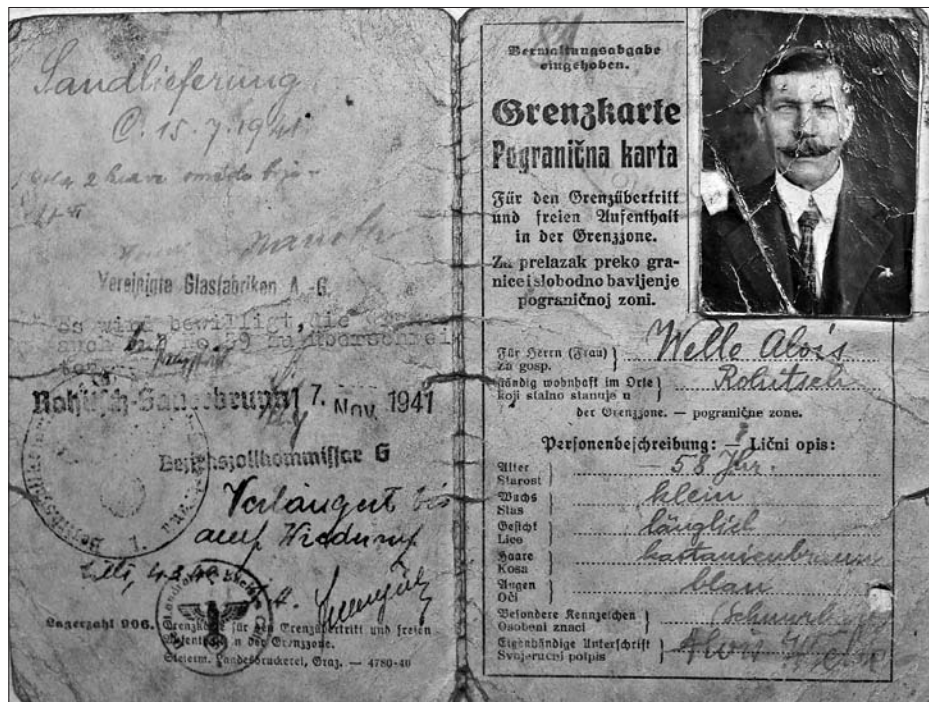 Sandlieferung
15.7.1941
Vereinigte Glasfabriken A.-G.
Es wird bewilligt, die
auch b.d No.59 zu überschrei
ten.
Rohitsch-Sauerbrunn 17. Nov. 1941
Bezirkszollkommissar G
Verlängert bis
auf Widerruf
Cilli, 4.
Lagerzahl 906. Grenzkarte für den Grenzübertritt und freien
Aufenthalt in der Grenzzone.
Steierm. Landesdruckerei, Graz. — 4780-40
Verwaltungsabgabe
eingehoben.
Grenzkarte
Pogranična karta
Für den Grenzübertritt
und freien Aufenthalt
in der Grenzzone.
Za prelazak preko gra-
nice i slobodno bavljenje
pograničnoj zoni.
Für Herrn (Frau)
Za gosp.
Welle Alois
ständig wohnhaft im Orte
koji stalno stanuje u
Rohitsch
der Grenzzone. — pogranične zone.
Personenbeschreibung: — Lični opis:
Alter
Starost
58 Jhr.
Wuchs
Stas
klein
Gesicht
Lice
länglich
Haare
Kosa
kastanienbraun
Augen
Oči
blau
Besondere Kennzeichen
Osobeni znaci
Eigenhändige Unterschrift
Svojeručni potpis
Alois Welle